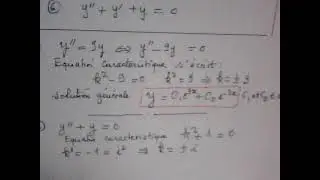 6) y'' + y' + y = 0
y'' = 9y ⇔ y'' - 9y = 0
Equation caractéristique s'écrit :
k² - 9 = 0 k² = 9 ⇒ k = ± 3
solution générale y = C₁e³ˣ + C₂e⁻³ˣ C₁
) y'' + y = 0
Equation caractéristique k² + 1 = 0
k² = -1 = i² ⇒ k = ± i